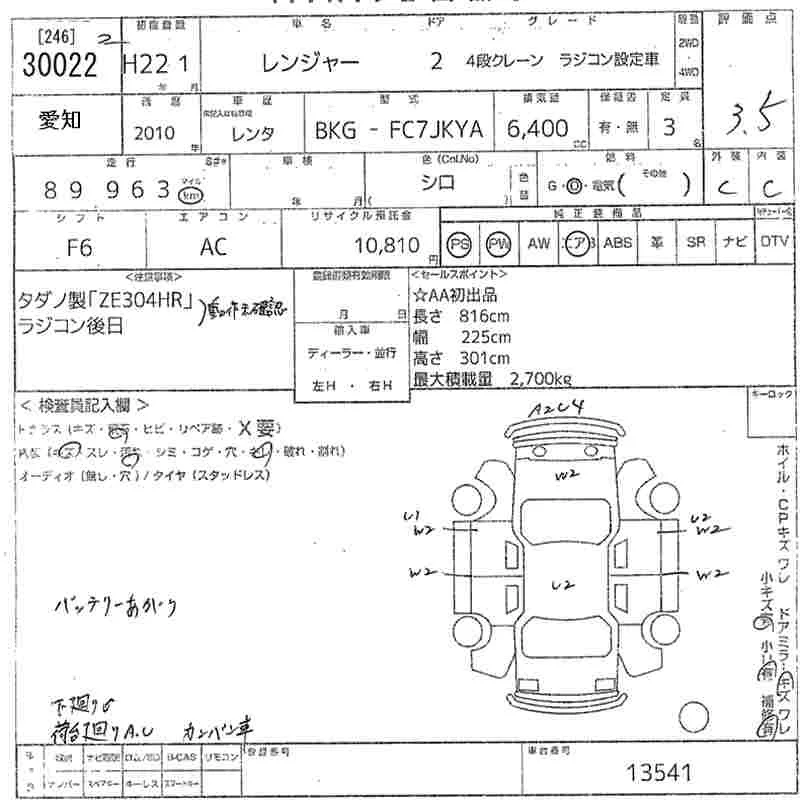 [246] 2
30022
初度登録
H22 1
年 月
車名
レンジャー
ドア
2
グレード
4段クレーン ラジコン設定車
駆動
2WD
4WD
評価点
3.5
愛知
2010
年
車歴
レンタ
型式
BKG - FC7JKYA
排気量
6,400
CC
保証書
有・無
定員
3
名
走行
89 963
マイル
km
車検
年 月(
色(Cnl.No)
シロ
)
色替
燃料
G・O・電気( その他 )
外装
C
内装
C
シフト
F6
エアコン
AC
リサイクル預託金
10,810
円
純正装備品
PS PW AW エアB ABS 革 SR ナビ DTV
<注意事項>
タダノ製「ZE304HR」
ラジコン後日
動作未確認
月 日
輸入車
ディーラー・並行
左H ・ 右H
<セールスポイント>
☆AA初出品
長さ 816cm
幅 225cm
高さ 301cm
最大積載量 2,700kg
キーロック
< 検査員記入欄 >
(キズ・ ・ヒビ・リペア跡・X要)
スレ・ ・シミ・コゲ・穴・ ・破れ・割れ)
オーディオ(無し・穴)/タイヤ(スタッドレス)
A2U4
W2
U1
W2
U2
W2
W2
U2
W2
バッテリーあがり
下廻りS
荷台廻りA.U カンバン車
ホイル・CPキズワレ ドアミラーキズワレ
小キズ 小U有 補修有
ナビ取説 ロム/CD B-CAS リモコン
ナンバー スペアキー キーレス スマートキー
登録番号
車台番号
13541